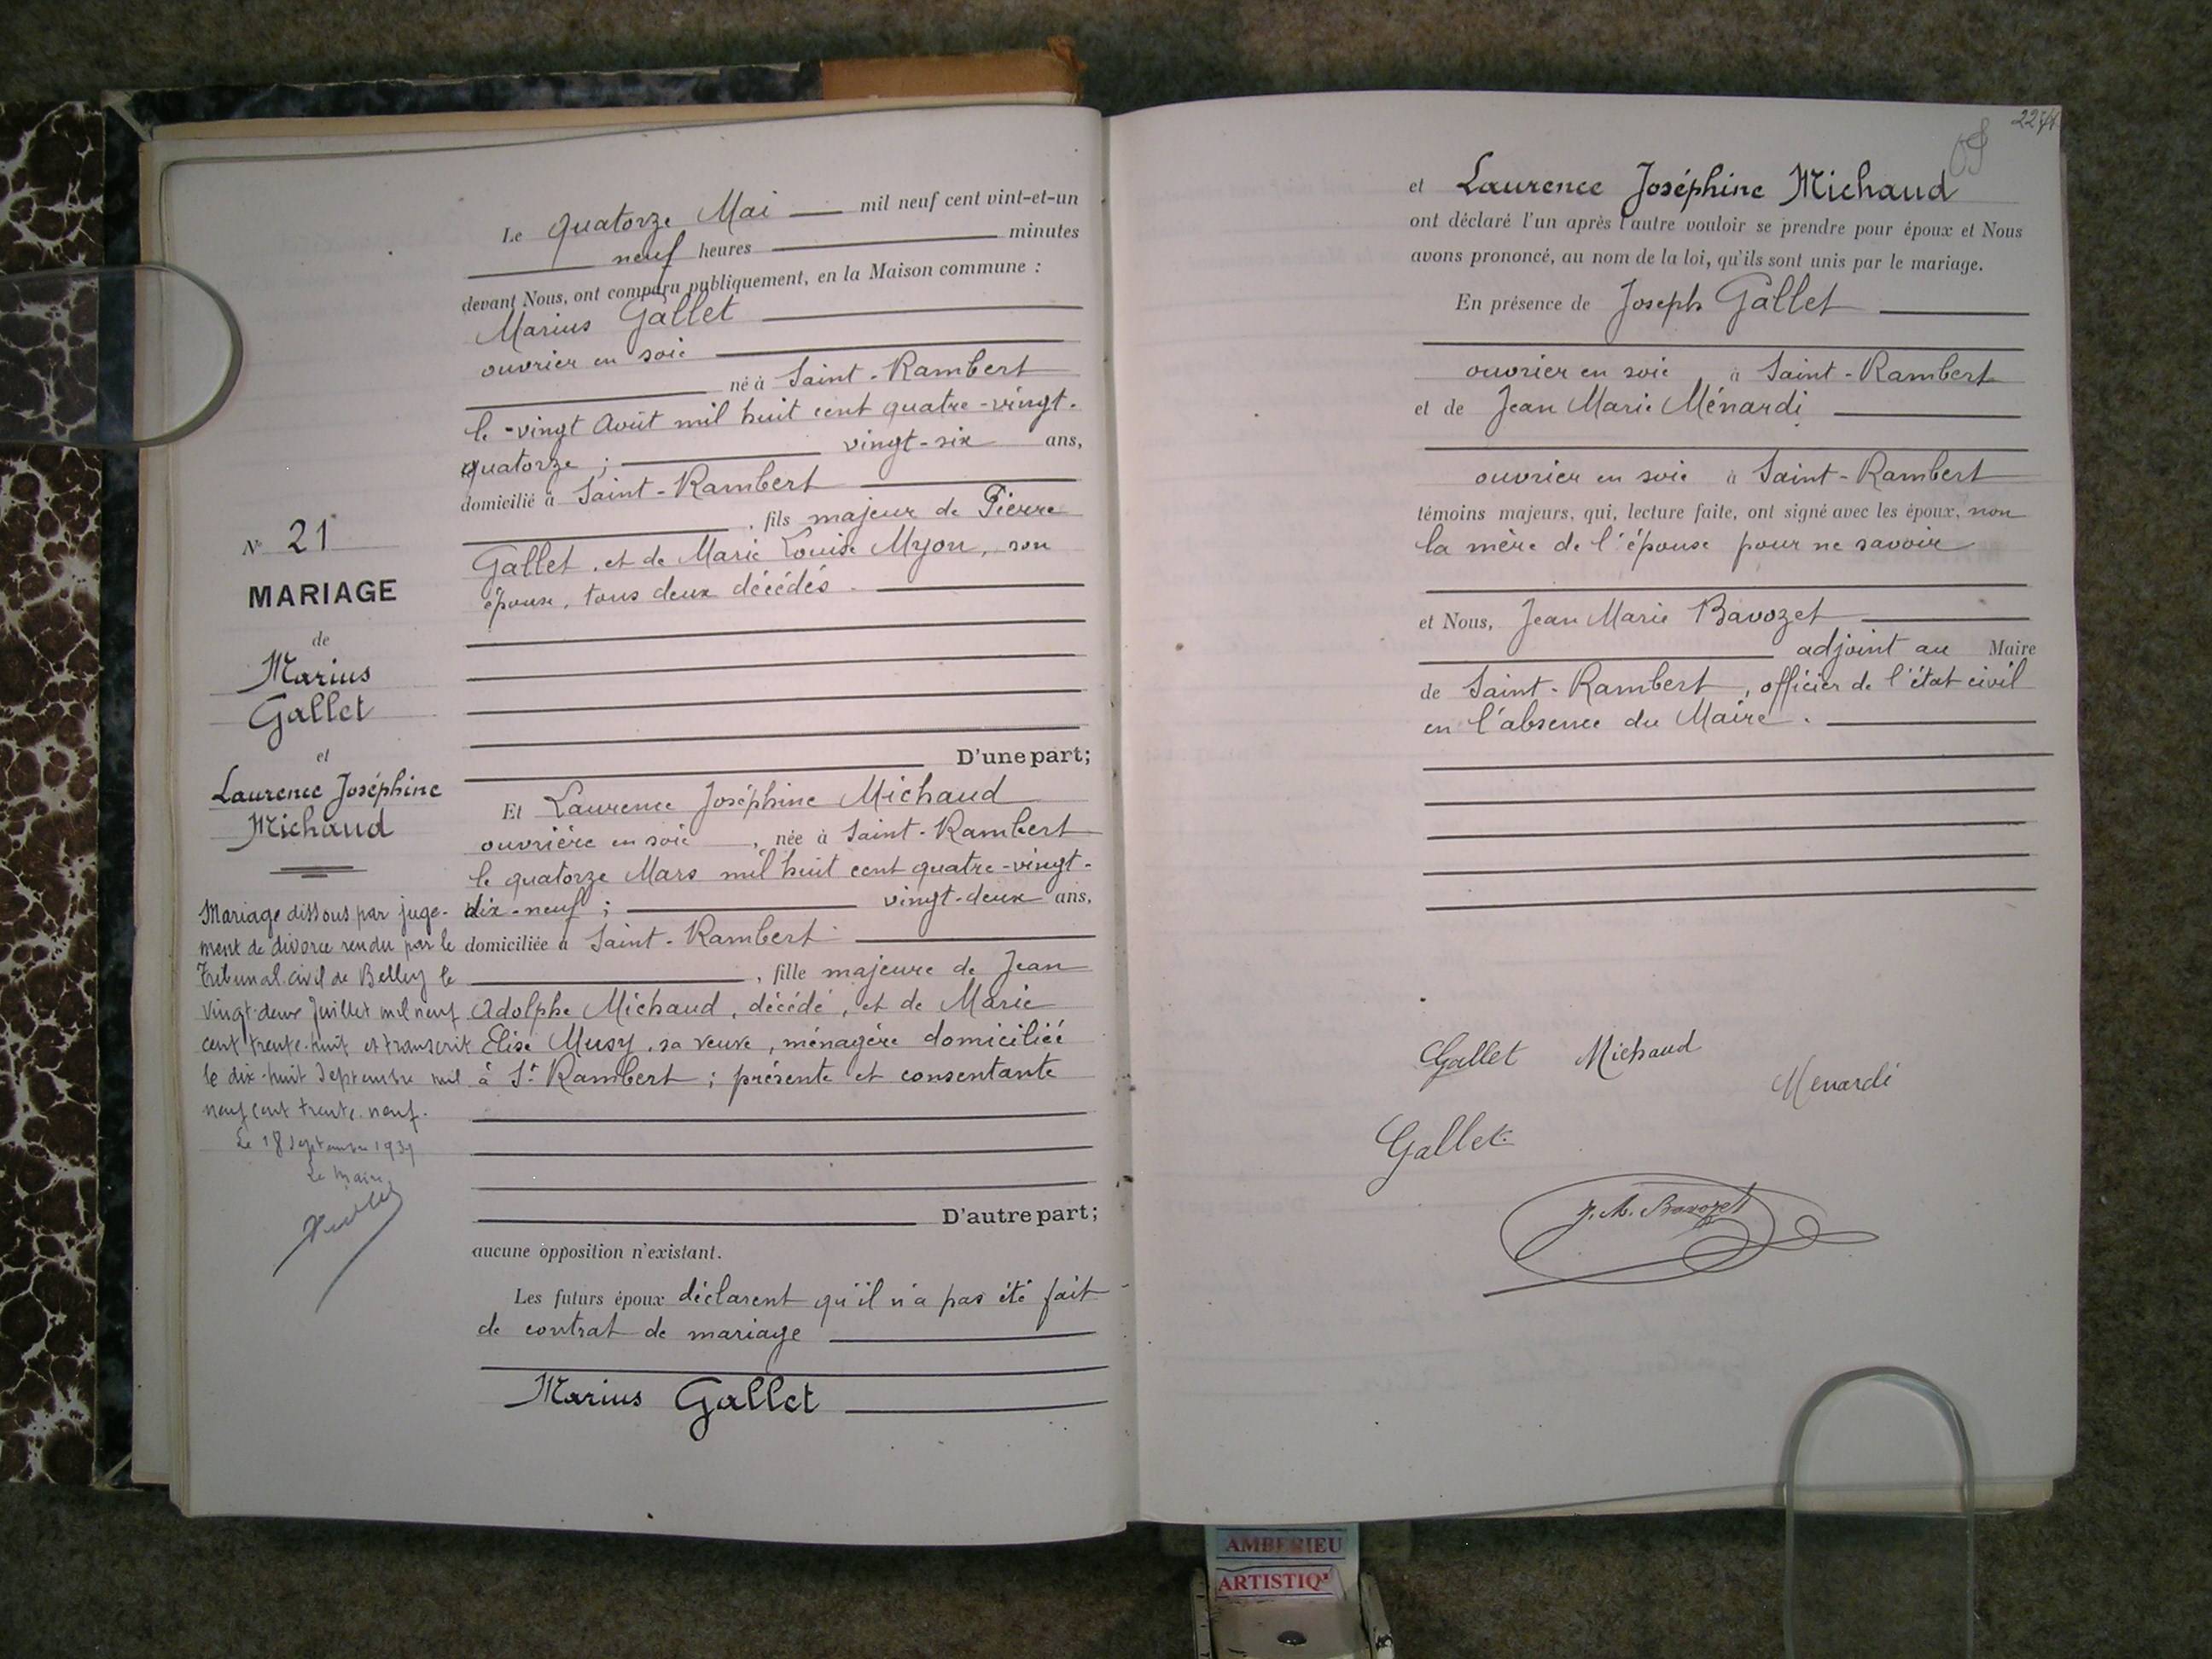 N° 21
MARIAGE
de
Marius
Gallet
et
Laurence Joséphine
Michaud
Mariage dissous par juge-
ment de divorce rendu par le
Tribunal civil de Belley le
vingt-deux Juillet mil neuf
cent trente-huit et transcrit
le dix-huit Septembre mil
neuf cent trente-neuf.
Le 18 Septembre 1939
Le Maire
Le quatorze Mai mil neuf cent vint-et-un
neuf heures minutes
devant Nous, ont comparu publiquement, en la Maison commune :
Marius Gallet
ouvrier en soie
né à Saint-Rambert
le vingt Août mil huit cent quatre-vingt-
quatorze ; vingt-six ans,
domicilié à Saint-Rambert
, fils majeur de Pierre
Gallet, et de Marie Louise Myon, son
épouse, tous deux décédés.
D'une part;
Et Laurence Joséphine Michaud
ouvrière en soie, née à Saint-Rambert
le quatorze Mars mil huit cent quatre-vingt-
dix-neuf ; vingt-deux ans,
domiciliée à Saint-Rambert
, fille majeure de Jean
Adolphe Michaud, décédé, et de Marie
Elise Musy, sa veuve, ménagère domiciliée
à St Rambert ; présente et consentante
D'autre part;
aucune opposition n'existant.
Les futurs époux déclarent qu'il n'a pas été fait
de contrat de mariage
Marius Gallet
et Laurence Joséphine Michaud
ont déclaré l'un après l'autre vouloir se prendre pour époux et Nous
avons prononcé, au nom de la loi, qu'ils sont unis par le mariage.
En présence de Joseph Gallet
ouvrier en soie à Saint-Rambert
et de Jean Marie Ménardi
ouvrier en soie à Saint-Rambert
témoins majeurs, qui, lecture faite, ont signé avec les époux, non
la mère de l'épouse pour ne savoir
et Nous, Jean Marie Bavozet
adjoint au Maire
de Saint-Rambert, officier de l'état civil
en l'absence du Maire.
Gallet Michaud
Menardi
Gallet
J. M. Bavozet
AMBERIEU
ARTISTIQ